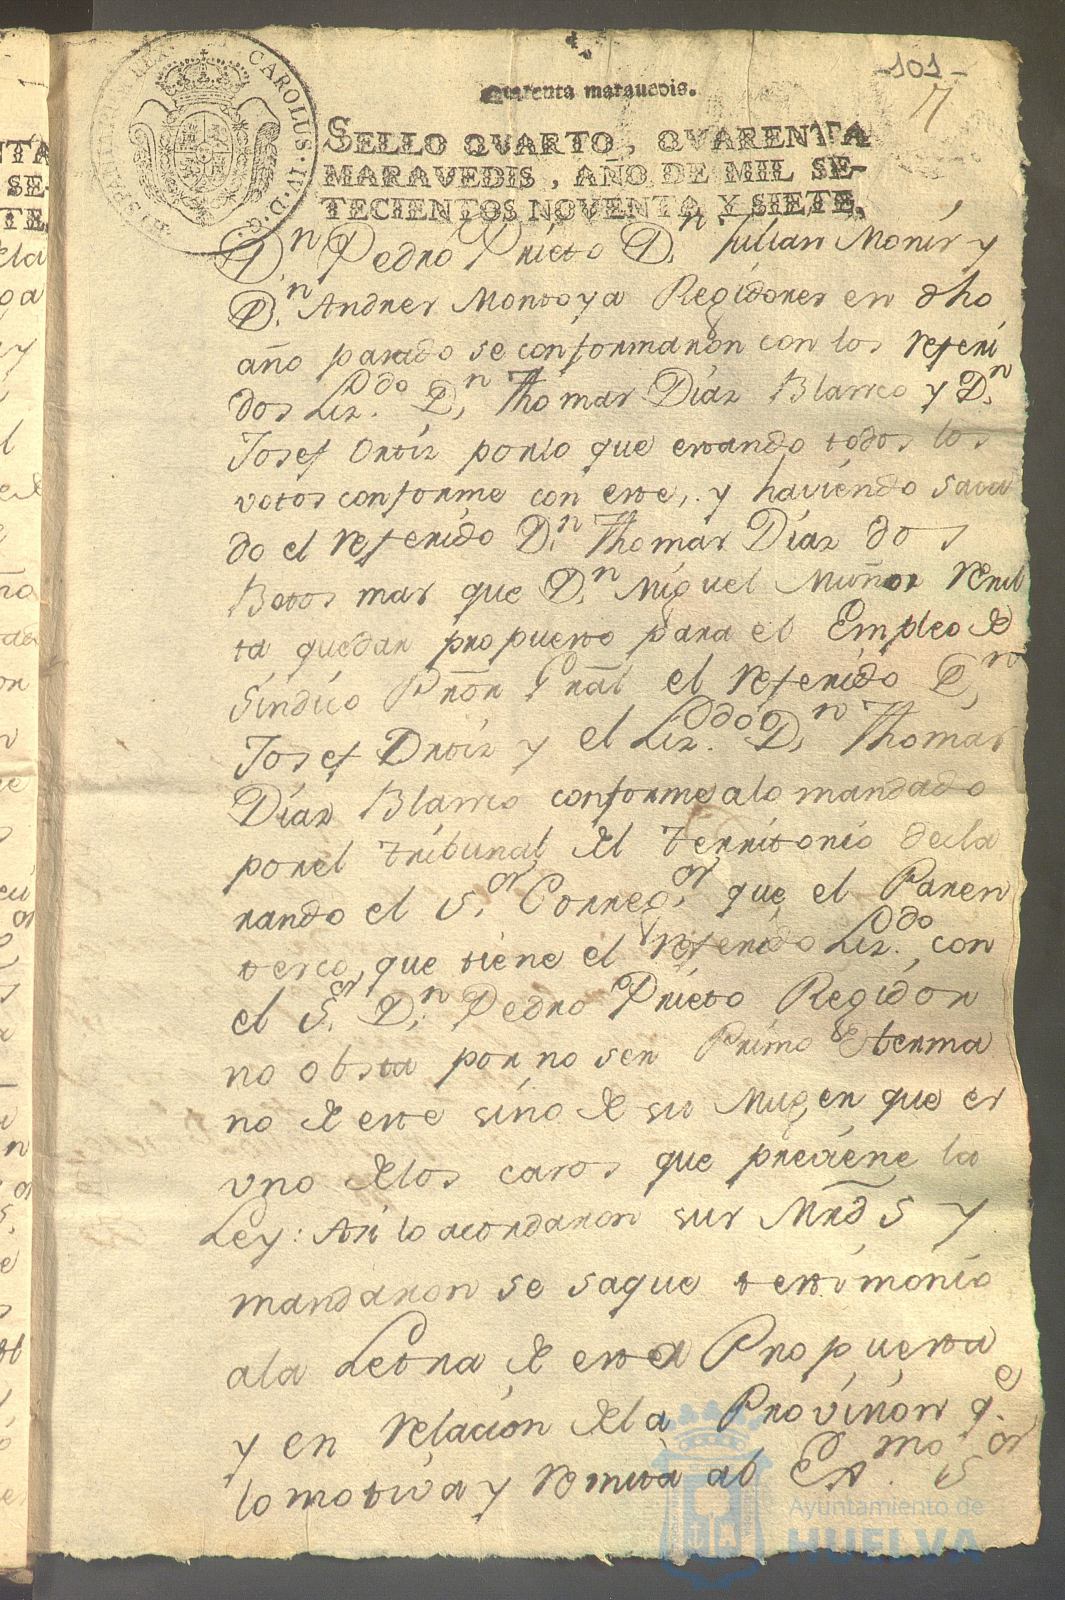 -101-
7
Quarenta marauedis.
CAROLUS·IV·D·G·
HISPANIAR·REX·
SELLO QVARTO, QVARENTA
MARAVEDIS, AÑO DE MIL SE-
TECIENTOS NOVENTA Y SIETE.
D.n Pedro Prieto D.n Julian Monis y
D.n Andres Montoya Regidores en dho
año pasado se conformaron con los referi
dos Liz.do D.n Thomas Diaz Blanco y D.n
Josef Ortiz porlo que estando todos los
votos conforme con este, y haviendo saca
do el referido D.n Thomas Diaz dos
Botos mas que D.n Miguel Muños resul
ta quedar propuesto para el Empleo de
Sindico Prõr Grãl el referido D.n
Josef Ortiz y el Liz.do D.n Thomas
Diaz Blanco conforme alo mandado
porel tribunal del territorio decla
rando el S.or Correg.or que el Paren
tesco, que tiene el referido Liz.do con
el S.or D.n Pedro Prieto Regidor
no obsta por no ser Primo Herma
no de este sino de su Muger que es
vno delos casos que previene la
Ley: Asi lo acordaron sus Mrds y
mandaron se saque testimonio
ala Letra de esta Propuesta
y en relacion dela Provision q.e
lo motiva y remita al Ex.mo S.or
Ayuntamiento de
HUELVA